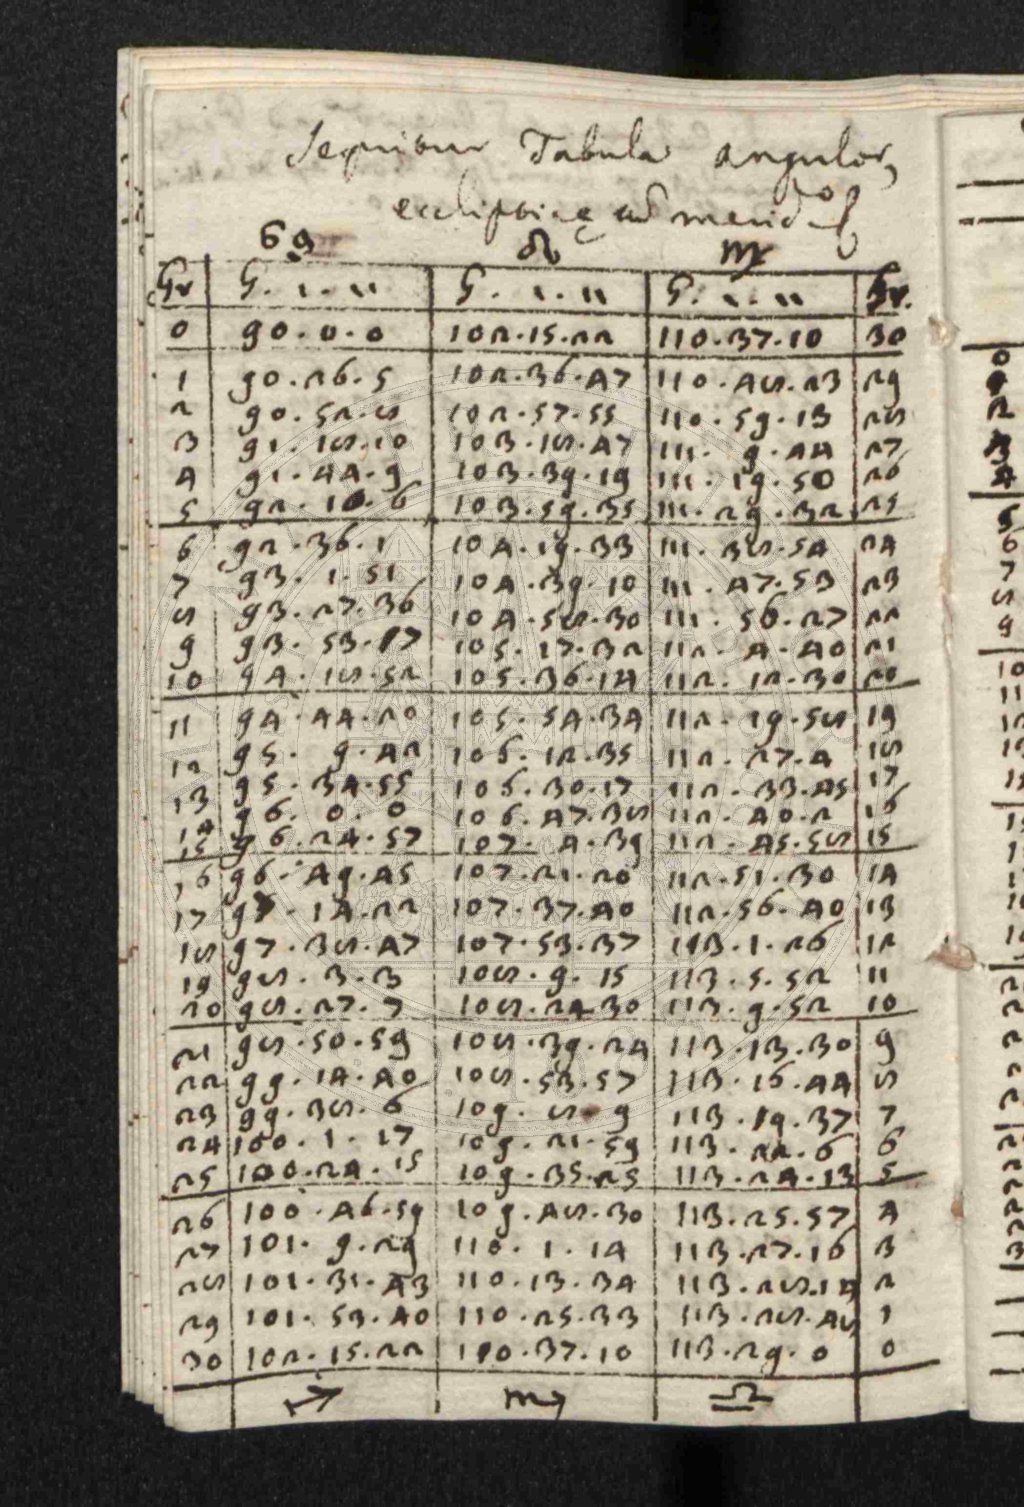 Sequitur Tabula angulor
eclipticę ad merid
♋ ♌ ♍
Gr G. ı. ıı G. ı. ıı G. ı. ıı Gr.
0 90.0.0 102.15.22 110.37.10 30
1 90.26.5 102.36.47 110.48.23 29
2 90.52.8 102.57.55 110.59.13 28
3 91.18.10 103.18.47 111.9.44 27
4 91.44.9 103.39.19 111.19.50 26
5 92.10.6 103.59.35 111.29.32 25
6 92.36.1 104.19.33 111.38.54 24
7 93.1.51 104.39.10 111.47.53 23
8 93.27.36 104.58.30 111.56.27 22
9 93.53.17 105.17.32 112.4.40 21
10 94.18.52 105.36.14 112.12.30 20
11 94.44.20 105.54.34 112.19.58 19
12 95.9.42 106.12.35 112.27.4 18
13 95.34.55 106.30.17 112.33.45 17
14 96.0.0 106.47.38 112.40.2 16
15 96.24.57 107.4.39 112.45.58 15
16 96.49.45 107.21.20 112.51.30 14
17 97.14.22 107.37.40 112.56.40 13
18 97.38.47 107.53.37 113.1.26 12
19 98.3.3 108.9.15 113.5.52 11
20 98.27.7 108.24.30 113.9.52 10
21 98.50.59 108.39.24 113.13.30 9
22 99.14.40 108.53.57 113.16.44 8
23 99.38.6 109.8.9 113.19.37 7
24 100.1.17 109.21.59 113.22.6 6
25 100.24.15 109.35.25 113.24.13 5
26 100.46.59 109.48.30 113.25.57 4
27 101.9.29 110.1.14 113.27.16 3
28 101.31.43 110.13.34 113.28.14 2
29 101.53.40 110.25.33 113.28.48 1
30 102.15.22 110.37.10 113.29.0 0
♐ ♏ ♎